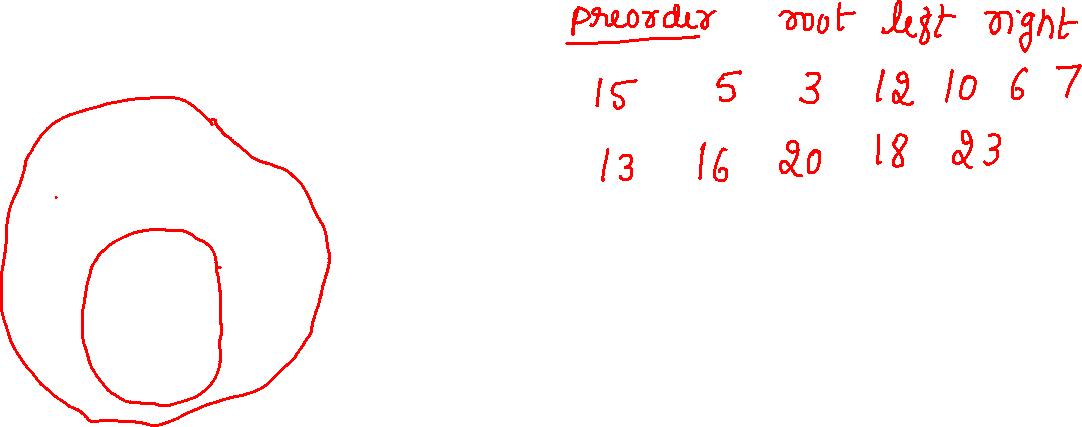 preorder root left right
15 5 3 12 10 6 7
13 16 20 18 23